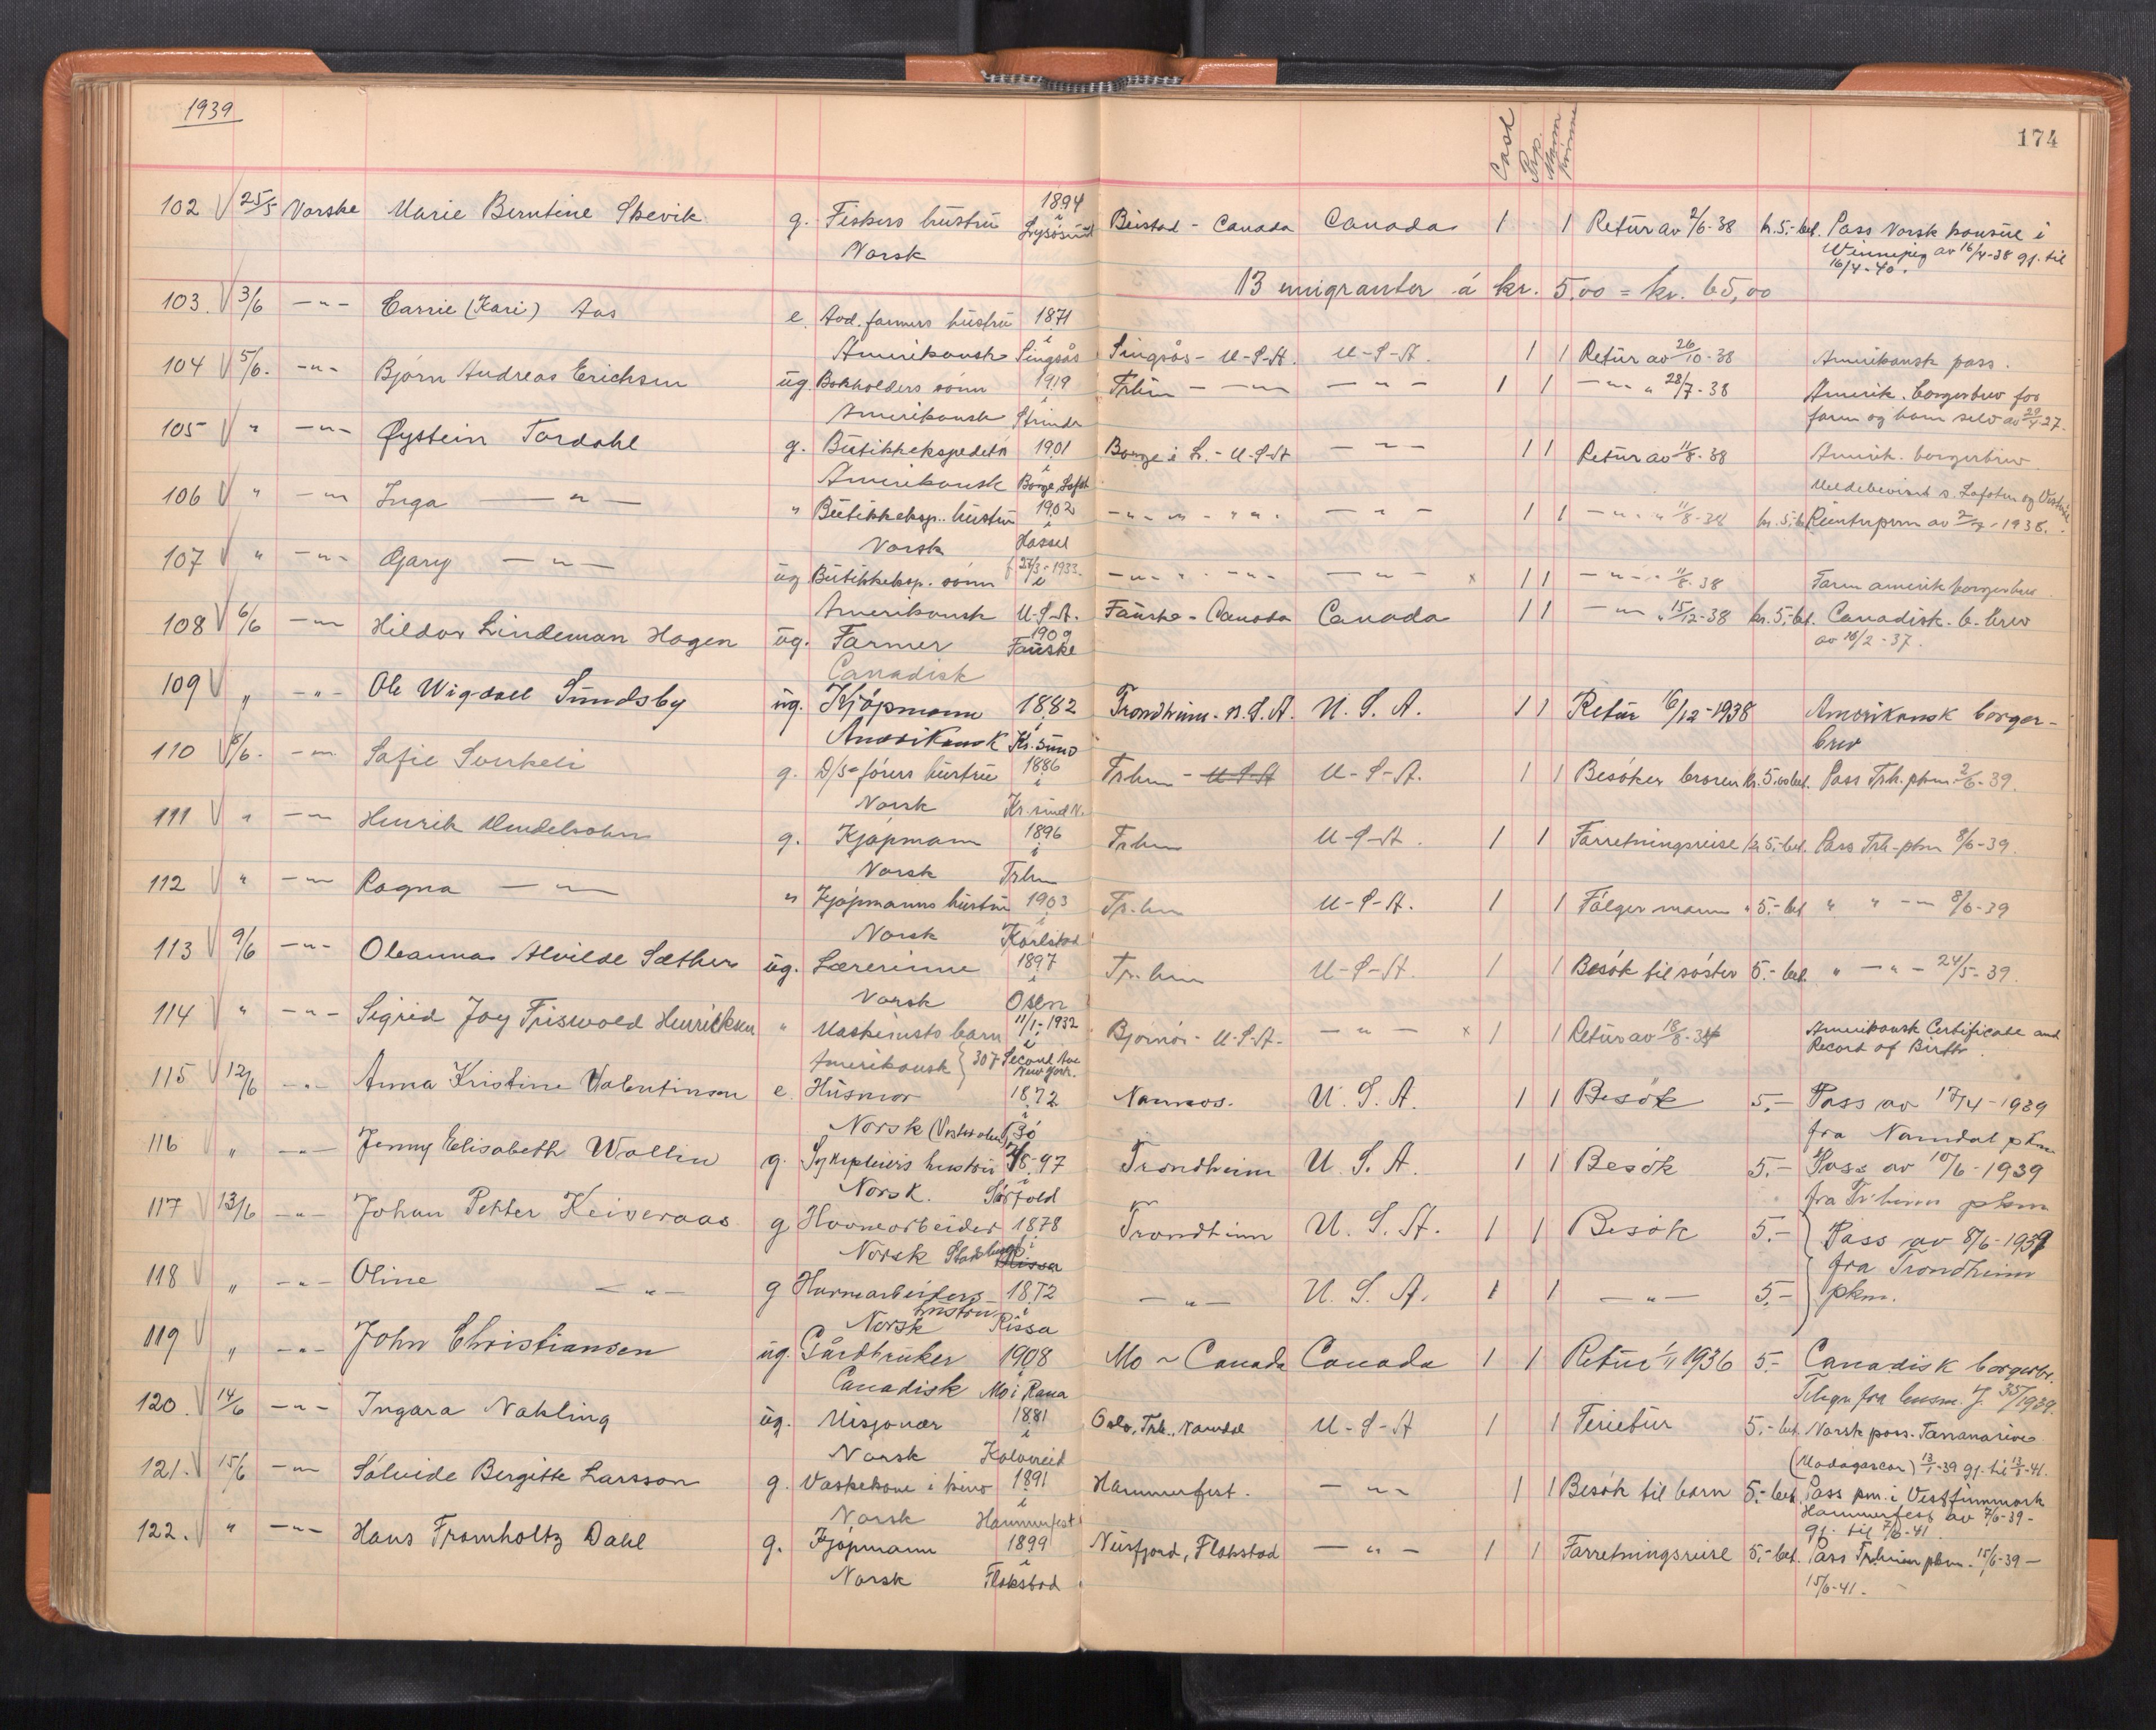 1939
174
Cash Prp. Mann Kvinne
102 25/5 Norske Marie Berntine Skevik g. Fiskers hustru 1894 Beistad - Canada Canada 1 1 Retur av 2/6-38 kr. 5,- bet. Pass Norsk konsul i
Norsk i Lysøsund Winnipeg av 16/4-38 gj. til
16/4-40.
13 emigranter á kr. 5,00 = kr. 65,00
103. 3/6 -"- Carrie (Kari) Aas e. Avd. farmers hustru 1871
Amerikansk i Singsås Singsås - U-S-A. U-S-A. 1 1 Retur av 26/10-38 Amerikansk pass.
104 5/6. -"- Bjørn Andreas Erichsen ug. Bokholders sønn 1919 Trhm - -"- -"- 1 1 -"- " 28/7-38 Amerik. borgerbrev for
Amerikansk i Strinda faren og ham selv av 29/4-27.
105 " -"- Øystein Tordahl g. Butikkekspeditør 1901 Borge i L. - U-S-A -"- 1 1 Retur av 11/8-38 Amerik. borgerbrev.
Amerikansk i Borge, Lofot Meldebevis s. Lofoten og Vesterålen
106 " -"- Inga -"- " Butikkeksp. hustru 1902 -"- -"- -"- 1 1 -"- " 11/8-38 kr. 5,- b. Reentryperm av 2/7-1938.
Norsk i Hassel
107 " -"- Gary -"- ug Butikkeksp. sønn f 27/3-1933. -"- -"- -"- x 1 1 -"- " 11/8-38 Faren amerik borgerbrev
Amerikansk i U-S-A.
108 6/6 -"- Hildor Lindeman Hagen ug. Farmer 1909 Fauske Fauske - Canada Canada 1 1 -"- " 15/12-38 kr. 5,- bet. Canadisk. b. brev
Canadisk av 16/2-37.
109 " -"- Ole Wigdall Sundsby ug. Kjøpmann 1882 Trondheim - U.S.A. U.S.A. 1 1 Retur 16/12-1938 Amerikansk borger-
Amerikansk i Kr.sund brev
110 8/6. -"- Sofie Sverkeli g. D/S-førers hustru 1886 Trhm - U-S-A U-S-A. 1 1 Besøker broren kr. 5.oo bet. Pass Trh. pkm. 2/6-39.
Norsk i Kr.sund N.
111 " -"- Henrik Mendelsohn g. Kjøpmann 1896 Trhm U-S-A. 1 1 Forretningsreise kr. 5,- bet. Pass Trh-pkm 8/6-39.
Norsk i Trhm
112 " -"- Ragna -"- " Kjøpmanns hustru 1903 Tr.hm U-S-A. 1 1 Følger mann " 5.- bet " " -"- 8/6-39
Norsk i Karlstad
113 9/6 -"- Oleanna Alvilde Sæther ug. Lærerinne 1897 Tr.hm U-S-A. 1 1 Besøk til søster 5.- bet. " -"- 24/5-39.
Norsk i Osen
114 " -"- Sigrid Joy Triswold Henriksen " Maskinists barn 11/1-1932 Bjørnør - U-S-A- -"- x 1 1 Retur av 18/8-34 Amerikansk Certificate and
Amerikansk i 307 Second Ave New York. Record of Birth.
115 12/6 -"- Anna Kristine Valentinsen e. Husmor 1872 Namsos. U.S.A. 1 1 Besøk 5.- Pass av 17/4-1939
Norsk (Vesterålen) i Bø fra Namdal pkm
116 " -"- Jenny Elisabeth Wollin g. Sykepleiers hustru 4/8-97 Trondheim U.S.A. 1 1 Besøk 5.- Pass av 10/6-1939
Norsk. i Sørfold fra Tr.heim pkm
117 13/6 -"- Johan Petter Keiseraas g Havnearbeider 1878 Trondheim U.S.A. 1 1 Besøk 5.- Pass av 8/6-1939
Norsk Stadsbygd i Rissa fra Trondheim
118 " -"- Oline -"- g Havnearbeiders 1872 -"- U.S.A. 1 1 -"- 5.- pkm.
hustru
Norsk i Rissa
119 " -"- John Christiansen ug. Gårdbruker 1908 Mo ~ Canada Canada 1 1 Retur 1/11 1936 5.- Canadisk borgerbr.
Canadisk i Mo i Rana Telegr. fra lensm. J. 35/1939.
120. 14/6 -"- Ingara Nakling ug. Misjonær 1881 Oslo, Trh., Namdal U-S-A 1 1 Ferietur 5.- bet. Norsk pass. Tananarive
Norsk i Kolvereid (Madagascar) 13/1-39 gj. til 13/1-41.
121. 15/6 -"- Sølvide Bergitte Larsson g. Vaskekone i kino 1891 Hammerfest. -"- 1 1 Besøk til barn 5.- bet. Pass pm. i Vestfinnmark
Norsk i Hammerfest Hammerfest av 7/6-39-
gj. til 7/6-41.
122. " -"- Hans Fromholtz Dahl g. Kjøpmann 1899 Nusfjord, Flakstad -"- 1 1 Forretningsreise 5.- bet. Pass Tr.heim pkm. 15/6-39-
Norsk i Flakstad 15/6-41.-